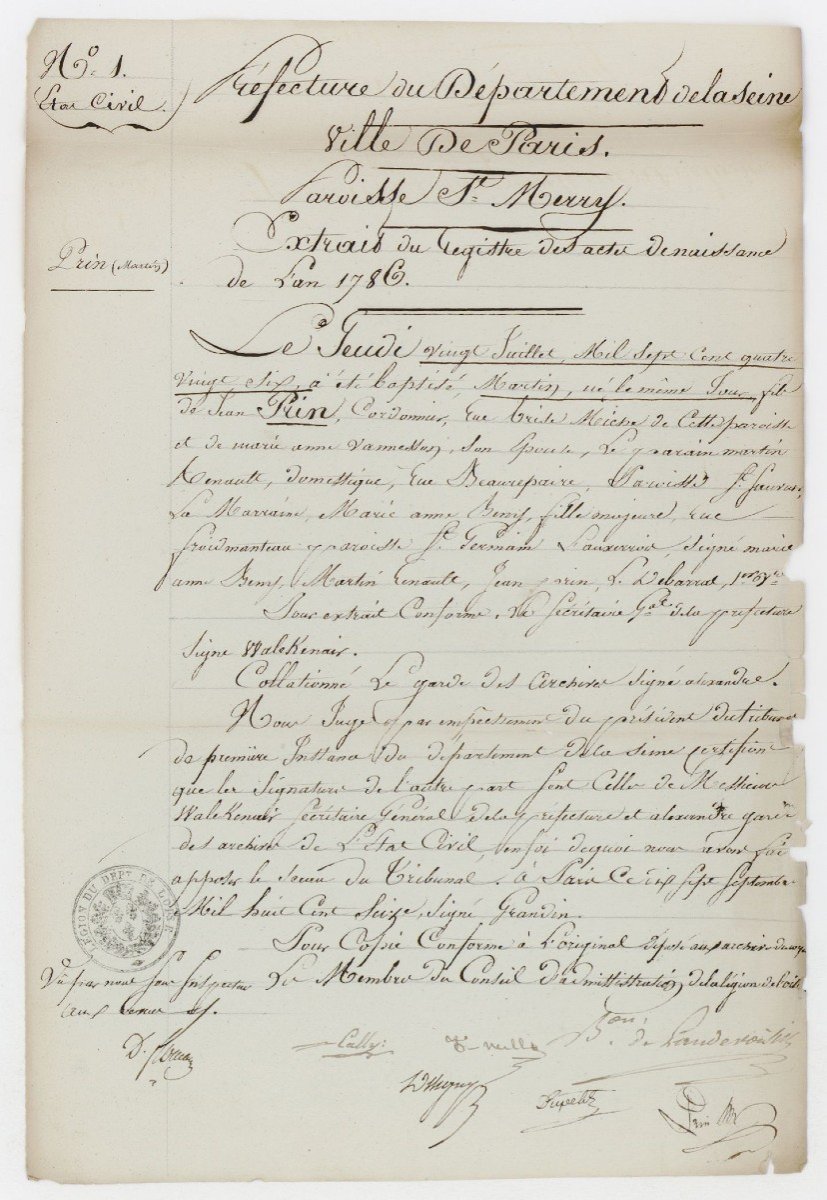 No. 1.
Etat Civil.
Préfecture du Département de la Seine
Ville De Paris.
Paroisse St. Merry.
Prin (Martin)
Extrait du Registre des actes de naissance
de L'an 1786.
Le Jeudi vingt Juillet, Mil Sept Cent quatre
vingt Six, a été baptisé, Martin, né le même Jour, fils
de Jean Prin, Cordonnier, Rue Brise Miche de Cette paroisse
et de marie anne Vannesson, Son Epouse, Le parain martin
Renault, domestique, Rue Beaurepaire, Paroisse St. Sauveur,
La Marraine, Marie anne Benis, fille majeure, rue
froidmanteau paroisse St. Germain L'auxerrois, Signé marie
anne Benis, Martin Renault, Jean prin, L. Debarral, 1er. Vre.
Pour extrait Conforme, Le Secrétaire Gal. de la préfecture
Signé WalcKenair.
Collationné Le garde des Archives Signé alexandre.
Nous Juge par empêchement du président du tribunal
de première Instance du département de la Seine certifions
que les Signatures de l'autre part Sont Celles de Messieurs
WalcKenair Secrétaire Général de la préfecture et alexandre garde
des archives de L'Etat Civil, en foi de quoi nous avons fait
apposer le Sceau du Tribunal. à Paris Ce dix Sept Septembre
Mil huit Cent Seize, Signé Grandin.
Pour Copie Conforme à L'original déposé aux archives du corps
Les Membres du Conseil D'admittistration de la légion de l'oise
LEGION DU DEPT DE L'OISE
Vu par nous Sous Inspecteur
aux revues
Cally
Bon. de
Dupetit
Prin